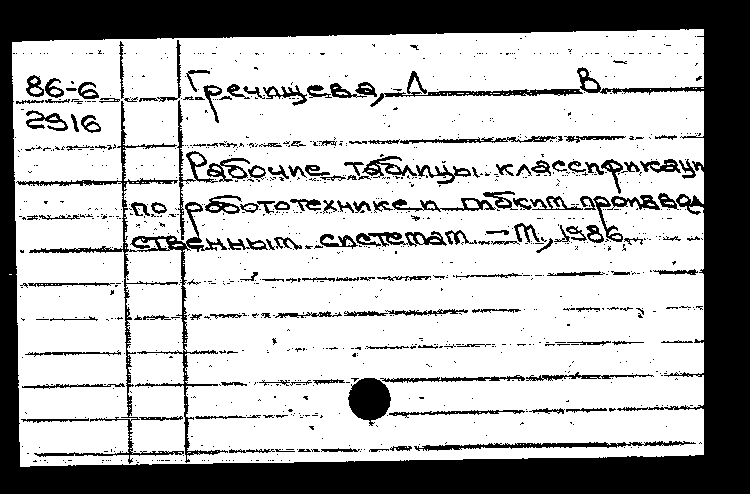 86-6
2916
Гречищева, Л В
Рабочие таблицы классификаци
по робототехнике и гибким производ
ственным системам - М, 1986